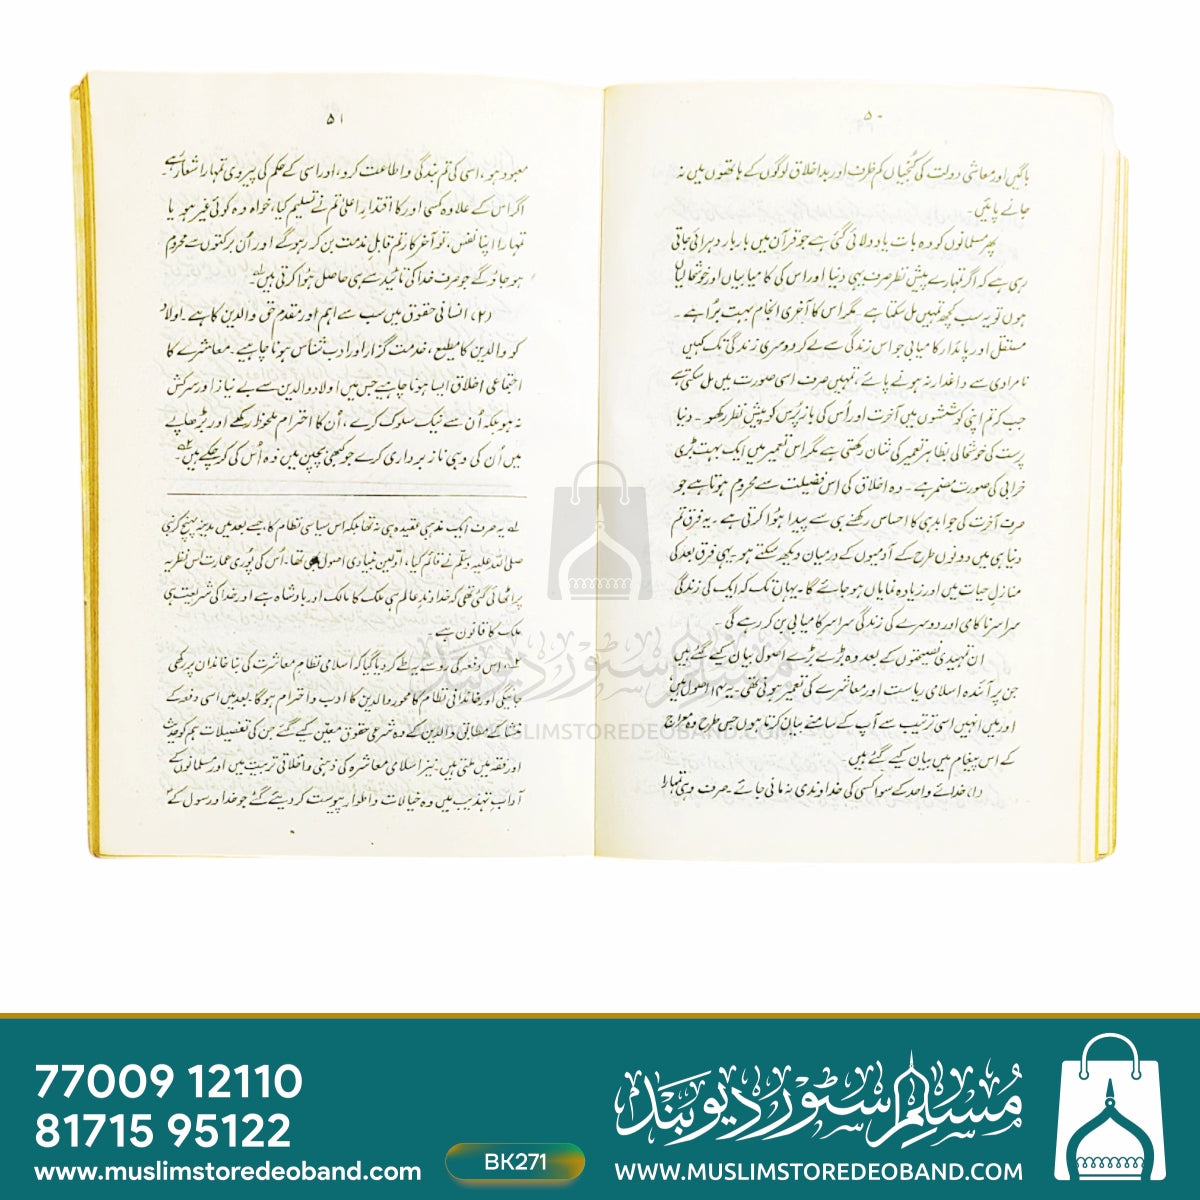 ۵۰
باگیں اور معاشی دولت کی کُنجیاں کم ظرف اور بد اخلاق لوگوں کے ہاتھوں میں نہ
جانے پائیں۔
پھر مسلمانوں کو وہ بات یاد دلائی گئی ہے جو قرآن میں بار بار دہرائی جاتی
رہی ہے کہ اگر تمہارے پیش نظر صرف یہی دنیا اور اس کی کامیابیاں اور خوشحالیاں
ہوں تو یہ سب کچھ تمہیں مل سکتا ہے۔ مگر اس کا آخری انجام بہت بُرا ہے۔
مستقل اور پائدار کامیابی جو اس زندگی سے لے کر دوسری زندگی تک کہیں
نامرادی سے داغدار نہ ہونے پائے، تمہیں صرف اسی صورت میں مل سکتی ہے
جب کہ تم اپنی کوششوں میں آخرت اور اُس کی بازپُرس کو پیش نظر رکھو۔ دنیا
پرست کی خوشحالی بظاہر تعمیر کی شان رکھتی ہے مگر اس تعمیر میں ایک بہت بڑی
خرابی کی صورت مضمر ہے۔ وہ اخلاق کی اس فضیلت سے محروم ہوتا ہے جو
صرف آخرت کی جوابدہی کا احساس رکھنے ہی سے پیدا ہُوا کرتی ہے۔ یہ فرق تم
دنیا ہی میں دونوں طرح کے آدمیوں کے درمیان دیکھ سکتے ہو۔ یہی فرق بعد کی
منازلِ حیات میں اور زیادہ نمایاں ہو جائے گا۔ یہاں تک کہ ایک کی زندگی
سراسر ناکامی اور دوسرے کی زندگی سراسر کامیابی بن کر رہے گی۔
ان تمہیدی نصیحتوں کے بعد وہ بڑے بڑے اصول بیان کیے گئے ہیں
جن پر آئندہ اسلامی ریاست اور معاشرے کی تعمیر ہونی تھی۔ یہ ۱۴ اصول ہیں
اور میں انہیں اسی ترتیب سے آپ کے سامنے بیان کرتا ہوں جس طرح وہ معراج
کے اس پیغام میں بیان کیے گئے ہیں۔
(۱) خدائے واحد کے سوا کسی کی خداوندی نہ مانی جائے۔ صرف وہی تمہارا
۵۱
معبود ہو، اسی کی تم بندگی و اطاعت کرو، اور اسی کے حکم کی پیروی تمہارا شعار رہے۔
اگر اس کے علاوہ کسی اور کا اقتدارِ اعلیٰ تم نے تسلیم کیا، خواہ وہ کوئی غیر ہو یا
تمہارا اپنا نفس، تو آخر کار تم قابلِ مذمت بن کر رہو گے اور اُن برکتوں سے محروم
ہو جاؤ گے جو صرف خدا کی تائید سے ہی حاصل ہُوا کرتی ہیں۔
(۲) انسانی حقوق میں سب سے اہم اور مقدم حق والدین کا ہے۔ اولاد
کو والدین کا مطیع، خدمت گزار اور ادب شناس ہونا چاہیے۔ معاشرے کا
اجتماعی اخلاق ایسا ہونا چاہیے جس میں اولاد والدین سے بے نیاز اور سرکش
نہ ہو بلکہ اُن سے نیک سلوک کرے، اُن کا احترام ملحوظ رکھے اور بڑھاپے
میں اُن کی وہی ناز برداری کرے جو کبھی بچپن میں وہ اُس کی کر چکے ہیں۔
لے یہ صرف ایک مذہبی عقیدہ ہی نہ تھا بلکہ اس سیاسی نظام کا، جسے بعد میں مدینہ پہنچ کر نبی
صلی اللہ علیہ وسلم نے قائم کیا، اوّلین بنیادی اصول بھی تھا۔ اُس کی پُوری عمارت اس نظریہ
پر اٹھائی گئی تھی کہ خداوندِ عالم ہی ملک کا مالک اور بادشاہ ہے اور خدا کی شریعت ہی
ملک کا قانون ہے۔
اس دفعہ کی رو سے یہ طے کر دیا گیا کہ اسلامی نظام معاشرت کی بنا خاندان پر رکھی
جائیگی اور خاندانی نظام کا محور والدین کا ادب و احترام ہوگا۔ بعد میں اسی دفعہ کے
منشا کے مطابق والدین کے وہ شرعی حقوق معین کیے گئے جن کی تفصیلات ہم کو حدیث
اور فقہ میں ملتی ہیں۔ نیز اسلامی معاشرہ کی ذہنی و اخلاقی تربیت میں اور مسلمانوں کے
آداب تہذیب میں وہ خیالات و اطوار پیوست کر دیئے گئے جو خدا و رسول کے
مسلم سٹور دیوبند
WWW.MUSLIMSTOREDEOBAND.COM
77009 12110
81715 95122
www.muslimstoredeoband.com
BK271
مسلم سٹور دیوبند
WWW.MUSLIMSTOREDEOBAND.COM